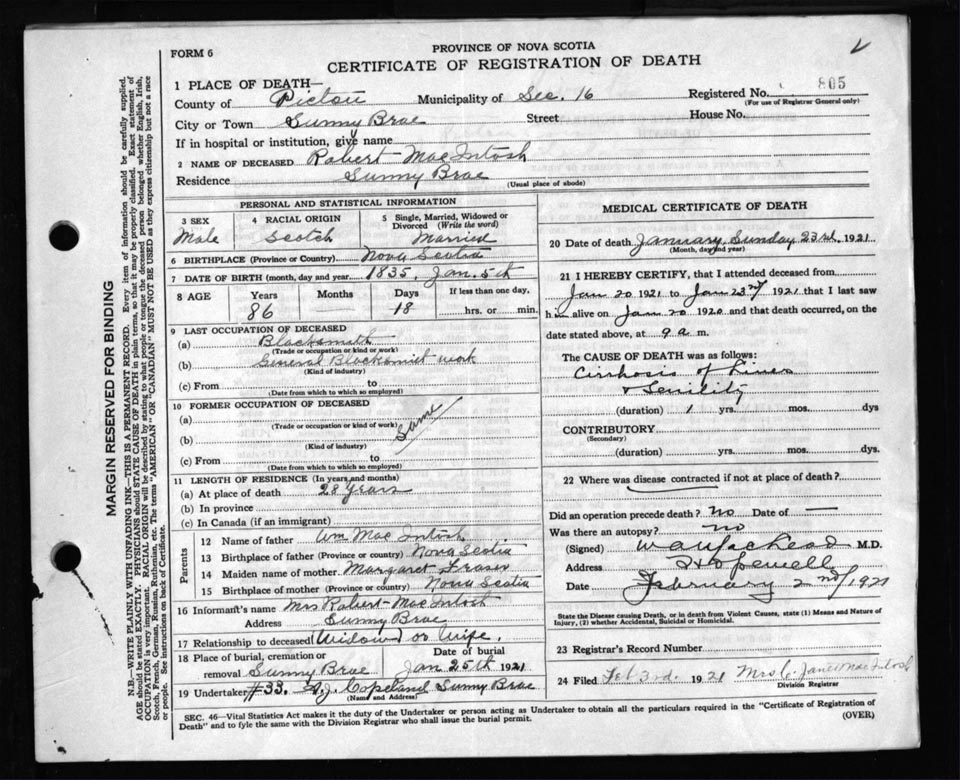 FORM 6
PROVINCE OF NOVA SCOTIA
CERTIFICATE OF REGISTRATION OF DEATH
1 PLACE OF DEATH—
Registered No. 805
(For use of Registrar General only)
County of Pictou Municipality of Sec. 16
City or Town Sunny Brae Street House No.
If in hospital or institution, give name
2 NAME OF DECEASED Robert MacIntosh
Residence Sunny Brae
(Usual place of abode)
PERSONAL AND STATISTICAL INFORMATION
3 SEX Male
4 RACIAL ORIGIN Scotch
5 Single, Married, Widowed or Divorced (Write the word) Married
6 BIRTHPLACE (Province or Country) Nova Scotia
7 DATE OF BIRTH (month, day and year) 1835, Jan. 5th
8 AGE Years 86 Months Days 18 If less than one day, hrs. or min.
9 LAST OCCUPATION OF DECEASED
(a) Blacksmith
(Trade or occupation or kind of work)
(b) General Blacksmith work
(Kind of industry)
(c) From to
(Date from which to which so employed)
10 FORMER OCCUPATION OF DECEASED
(a)
(Trade or occupation or kind of work)
(b) Same
(Kind of industry)
(c) From to
(Date from which to which so employed)
11 LENGTH OF RESIDENCE (In years and months)
(a) At place of death 28 Years
(b) In province
(c) In Canada (if an immigrant)
Parents
12 Name of father Wm MacIntosh
13 Birthplace of father (Province or country) Nova Scotia
14 Maiden name of mother Margaret Fraser
15 Birthplace of mother (Province or country) Nova Scotia
16 Informant's name Mrs Robert MacIntosh
Address Sunny Brae
17 Relationship to deceased Widow or Wife.
18 Place of burial, cremation or removal Sunny Brae Date of burial Jan 25th 1921
19 Undertaker #33. A.J. Copeland Sunny Brae
(Name and Address)
MEDICAL CERTIFICATE OF DEATH
20 Date of death January, Sunday 23rd, 1921
(Month, day and year)
21 I HEREBY CERTIFY, that I attended deceased from
Jan 20 1921 to Jan 23rd 1921 that I last saw
him alive on Jan 20 1920 and that death occurred, on the
date stated above, at 9 a m.
The CAUSE OF DEATH was as follows:
Cirrhosis of Liver
& Senility
(duration) 1 yrs. mos. dys
CONTRIBUTORY
(Secondary)
(duration) yrs. mos. dys.
22 Where was disease contracted if not at place of death?
Did an operation precede death? No Date of —
Was there an autopsy? no
(Signed) M.D.
Address Hopewell
Date February 2nd/1921
State the Disease causing Death, or in death from Violent Causes, state (1) Means and Nature of
Injury, (2) whether Accidental, Suicidal or Homicidal.
23 Registrar's Record Number
24 Filed Feb 3rd. 1921 Mrs C. Janet MacIntosh
Division Registrar
SEC. 46—Vital Statistics Act makes it the duty of the Undertaker or person acting as Undertaker to obtain all the particulars required in the "Certificate of Registration of
Death" and to fyle the same with the Division Registrar who shall issue the burial permit.
(OVER)
MARGIN RESERVED FOR BINDING
N.B.—WRITE PLAINLY WITH UNFADING INK—THIS IS A PERMANENT RECORD. Every item of information should be carefully supplied.
AGE should be stated EXACTLY. PHYSICIANS should STATE CAUSE OF DEATH in plain terms, so that it may be properly classified. Exact statement of
OCCUPATION is very important. RACIAL ORIGIN will be described by stating to what people or tongue the deceased person belonged whether English, Irish,
Scotch, French, German, Russian, Ruthenian, etc. The terms "AMERICAN" OR "CANADIAN" MUST NOT BE USED as they express citizenship but not a race
or people. See instructions on back of Certificate.